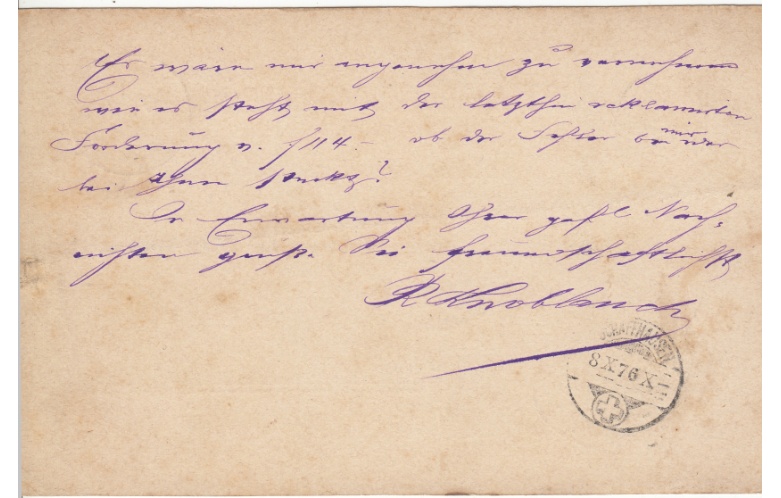 Es wäre mir angenehm zu vernehmen
wie es steht mit der letzthin reklamirten
Forderung v. f 114.- ob der Fehler bei mir oder
bei Ihnen steckt?
In Erwartung Ihrer gefl. Nach-
richten grüß. Sie freundschaftlichst
R Knoblauch
SCHAFFHAUSEN
8 X 76 X